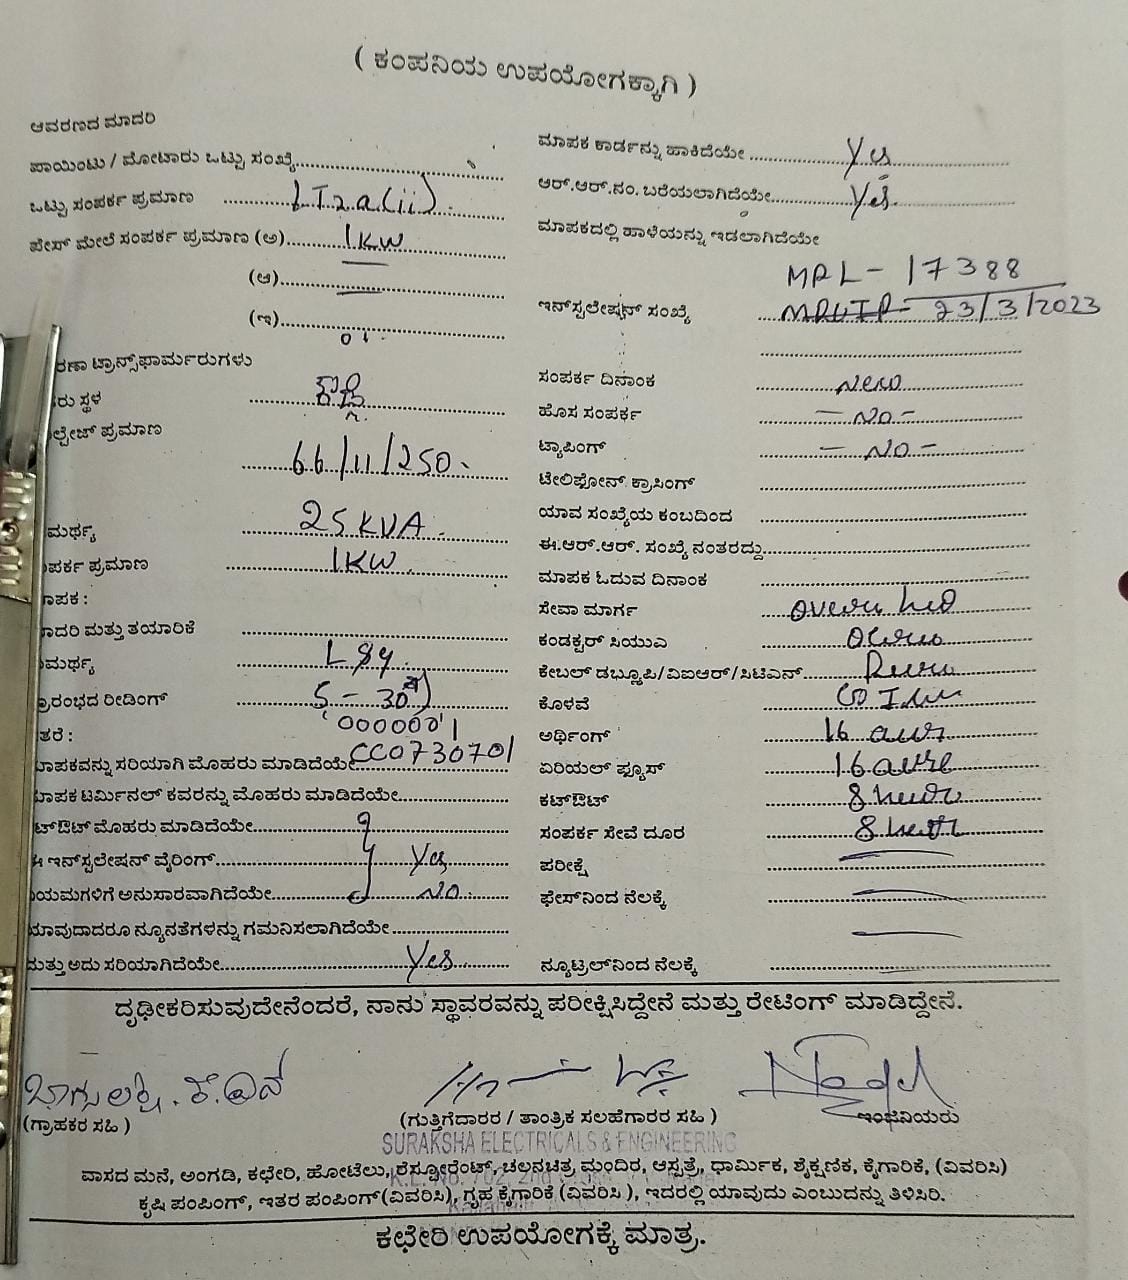 ( ಕಂಪನಿಯ ಉಪಯೋಗಕ್ಕಾಗಿ )
ಆವರಣದ ಮಾದರಿ
ಪಾಯಿಂಟು / ಮೋಟಾರು ಒಟ್ಟು ಸಂಖ್ಯೆ
ಒಟ್ಟು ಸಂಪರ್ಕ ಪ್ರಮಾಣ LT2a(ii)
ಪೇಸ್ ಮೇಲೆ ಸಂಪರ್ಕ ಪ್ರಮಾಣ (ಅ) 1KW
(ಆ)
(ಇ)
01
ರಣಾ ಟ್ರಾನ್ಸ್‌ಫಾರ್ಮರುಗಳು
ರು ಸ್ಥಳ
ಲ್ಟೇಜ್ ಪ್ರಮಾಣ
66/11/250
ಮರ್ಥ್ಯ 25KVA
ಪರ್ಕ ಪ್ರಮಾಣ 1KW
ಾಪಕ :
ಾದರಿ ಮತ್ತು ತಯಾರಿಕೆ
ಮರ್ಥ್ಯ L&G
ಪ್ರಾರಂಭದ ರೀಡಿಂಗ್ 5-30
0000001
ತರೆ :
CC0730701
ಮಾಪಕವನ್ನು ಸರಿಯಾಗಿ ಮೊಹರು ಮಾಡಿದೆಯೇ
ಮಾಪಕ ಟರ್ಮಿನಲ್ ಕವರನ್ನು ಮೊಹರು ಮಾಡಿದೆಯೇ
ಟ್‌ಔಟ್ ಮೊಹರು ಮಾಡಿದೆಯೇ
ಈ ಇನ್‌ಸ್ಟಲೇಷನ್ ವೈರಿಂಗ್ Yes
ಿಯಮಗಳಿಗೆ ಅನುಸಾರವಾಗಿದೆಯೇ NO
ಯಾವುದಾದರೂ ನ್ಯೂನತೆಗಳನ್ನು ಗಮನಿಸಲಾಗಿದೆಯೇ
ಮತ್ತು ಅದು ಸರಿಯಾಗಿದೆಯೇ Yes
ಮಾಪಕ ಕಾರ್ಡನ್ನು ಹಾಕಿದೆಯೇ Yes
ಆರ್.ಆರ್.ನಂ. ಬರೆಯಲಾಗಿದೆಯೇ Yes
ಮಾಪಕದಲ್ಲಿ ಹಾಳೆಯನ್ನು ಇಡಲಾಗಿದೆಯೇ
MRL-17388
ಇನ್‌ಸ್ಟಲೇಷನ್ ಸಂಖ್ಯೆ 23/3/2023
ಸಂಪರ್ಕ ದಿನಾಂಕ New
ಹೊಸ ಸಂಪರ್ಕ -NO-
ಟ್ಯಾಪಿಂಗ್ -NO-
ಟೇಲಿಫೋನ್ ಕ್ರಾಸಿಂಗ್
ಯಾವ ಸಂಖ್ಯೆಯ ಕಂಬದಿಂದ
ಈ.ಆರ್.ಆರ್. ಸಂಖ್ಯೆ ನಂತರದ್ದು
ಮಾಪಕ ಓದುವ ದಿನಾಂಕ
ಸೇವಾ ಮಾರ್ಗ
ಕಂಡಕ್ಟರ್ ಸಿಯುಎ
ಕೇಬಲ್ ಡಬ್ಲ್ಯೂಪಿ/ವಿಐಆರ್/ಸಿಟಿಎಸ್
ಕೊಳವೆ
ಅರ್ಥಿಂಗ್ 16
ಏರಿಯಲ್ ಫ್ಯೂಸ್ 16
ಕಟ್‌ಔಟ್ 8
ಸಂಪರ್ಕ ಸೇವೆ ದೂರ 8
ಪರೀಕ್ಷೆ
ಫೇಸ್‌ನಿಂದ ನೆಲಕ್ಕೆ
ನ್ಯೂಟ್ರಲ್‌ನಿಂದ ನೆಲಕ್ಕೆ
ದೃಢೀಕರಿಸುವುದೇನೆಂದರೆ, ನಾನು ಸ್ಥಾವರವನ್ನು ಪರೀಕ್ಷಿಸಿದ್ದೇನೆ ಮತ್ತು ರೇಟಿಂಗ್ ಮಾಡಿದ್ದೇನೆ.
(ಗ್ರಾಹಕರ ಸಹಿ )
(ಗುತ್ತಿಗೆದಾರರ / ತಾಂತ್ರಿಕ ಸಲಹೆಗಾರರ ಸಹಿ )
ಇಂಜಿನಿಯರು
SURAKSHA ELECTRICALS & ENGINEERING
ವಾಸದ ಮನೆ, ಅಂಗಡಿ, ಕಛೇರಿ, ಹೋಟೆಲು, ರೆಸ್ಟೋರೆಂಟ್, ಚಲನಚಿತ್ರ ಮಂದಿರ, ಆಸ್ಪತ್ರೆ, ಧಾರ್ಮಿಕ, ಶೈಕ್ಷಣಿಕ, ಕೈಗಾರಿಕೆ, (ವಿವರಿಸಿ)
ಕೃಷಿ ಪಂಪಿಂಗ್, ಇತರ ಪಂಪಿಂಗ್ (ವಿವರಿಸಿ), ಗೃಹ ಕೈಗಾರಿಕೆ (ವಿವರಿಸಿ ), ಇದರಲ್ಲಿ ಯಾವುದು ಎಂಬುದನ್ನು ತಿಳಿಸಿರಿ.
ಕಛೇರಿ ಉಪಯೋಗಕ್ಕೆ ಮಾತ್ರ.